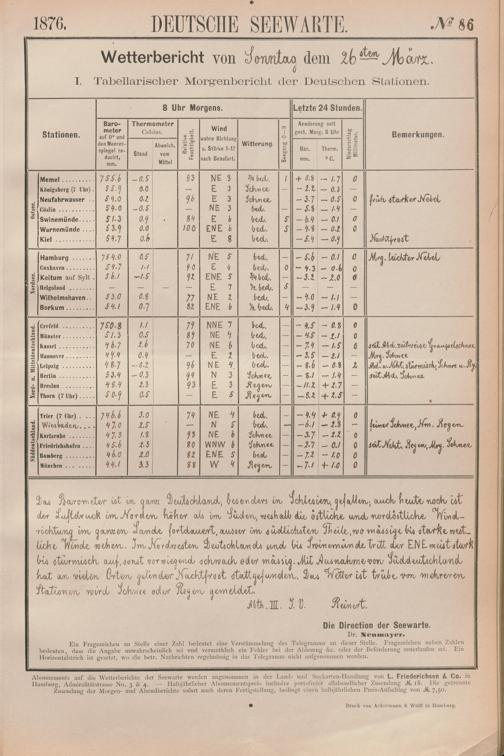 1876. DEUTSCHE SEEWARTE. № 86
Wetterbericht von Sonntag dem 26sten März.
I. Tabellarischer Morgenbericht der Deutschen Stationen.
Stationen. 8 Uhr Morgens. Letzte 24 Stunden. Bemerkungen.
Barometer auf 0° und den Meeresspiegel reducirt, mm. Thermometer Celsius. Stand Abweich. vom Mittel Relative Feuchtigkeit. Wind wahre Richtung u. Stärke 1–12 nach Beaufort. Witterung. Seegang 0–9 Aenderung seit gest. Morg. 8 Uhr Bar. mm. Therm. °C. Niederschlag Millimeter.
Ostsee.
Memel 755.6 –0.5 93 NE 3 ¾ bed. 1 +0.8 –1.7 0
Königsberg (7 Uhr) 55.9 0.0 – E 3 Schnee –2.2 –0.3 –
Neufahrwasser 54.0 0.2 96 E 3 Schnee –3.7 –0.5 0 früh starker Nebel
Cöslin 54.0 –0.5 – NE 3 bed. –5.8 – –
Swinemünde 51.3 0.9 84 E 6 bed. 5 –6.4 –0.1 0
Warnemünde 53.9 0.0 100 ENE 6 bed. 5 –4.8 –0.2 0
Kiel 54.7 0.6 E 8 bed. –5.4 –0.9 Nachtfrost
Nordsee.
Hamburg 754.0 0.5 71 NE 5 bed. –5.6 –0.1 0 Mrg. leichter Nebel
Cuxhaven 54.7 1.1 90 E 4 bed. 0 –4.3 –0.6 0
Keitum auf Sylt 56.1 –1.5 92 ENE 5 ½ bed. –3.2 –2.0 0
Helgoland – – – E 7 ½ bed. 5 – – –
Wilhelmshaven 53.0 0.8 77 NE 2 bed. –4.0 –1.1 –
Borkum 54.1 0.7 82 ENE 6 ½ bed. 4 –3.9 –1.4 0
Nord- u. Mitteldeutschland.
Crefeld 750.8 1.1 79 NNE 7 bed. –4.5 –0.8 0
Münster 51.3 0.5 89 NE 4 bed. –4.5 –2.1 0
Kassel 46.7 2.6 70 NE 6 bed. –7.9 –1.5 0 seit Abd. zeitweise Graupelschnee
Hannover 49.9 0.4 – E 2 bed. –3.5 –2.1 – Mrg. Schnee
Leipzig 48.7 –0.2 96 NE 4 bed. –8.6 –0.8 2
Berlin 53.4 –0.3 99 N 3 Schnee –8.1 –1.4 – seit Abd. Schnee
Breslau 45.9 2.3 93 E 3 Regen –11.2 +2.7 –
Thorn (7 Uhr) 50.9 0.5 – E 5 Regen –8.2 +2.5 –
Süddeutschland.
Trier (7 Uhr) 746.6 3.0 74 NE 4 bed. –4.4 +0.9 0
Wiesbaden 47.0 2.5 – N 5 bed. –6.1 –2.8 – feiner Schnee, Nm. Regen
Karlsruhe 47.3 1.8 93 NE 6 Schnee –3.7 –2.2 0
Friedrichshafen 45.6 2.3 80 WNW 6 Schnee –3.7 –0.1 0 seit Nchts. Regen, Mrg. Schnee
Bamberg 46.0 2.0 82 ENE 5 bed. –7.2 –2.0 –
München 44.1 3.3 58 W 4 Regen –7.1 +1.0 0
Das Barometer ist in ganz Deutschland, besonders in Schlesien, gefallen, auch heute noch ist
der Luftdruck im Norden höher als im Süden, weshalb die östliche und nordöstliche Wind-
richtung im ganzen Lande fortdauert, ausser im südlichsten Theile, wo mässige bis starke west-
liche Winde wehen. Im Nordwesten Deutschlands und bis Swinemünde tritt der ENE meist stark
bis stürmisch auf, sonst vorwiegend schwach oder mässig. Mit Ausnahme von Süddeutschland
hat an vielen Orten gelinder Nachtfrost stattgefunden. Das Wetter ist trübe von mehreren
Stationen wird Schnee oder Regen gemeldet.
Abth. III. I. V. Reinert.
Die Direction der Seewarte.
Dr. Neumayer.
Ein Fragezeichen an Stelle einer Zahl bedeutet eine Verstümmelung des Telegramms an dieser Stelle. Fragezeichen neben Zahlen
bedeuten, dass die Angabe unwahrscheinlich sei und vermuthlich ein Fehler bei der Ablesung &c. oder der Beförderung unterlaufen sei. Ein
Horizontalstrich ist gesetzt, wo die betr. Nachrichten regelmässig in das Telegramm nicht aufgenommen werden.
Abonnements auf die Wetterberichte der Seewarte werden angenommen in der Land- und Seekarten-Handlung von L. Friederichsen & Co. in
Hamburg, Admiralitätstrasse No. 3 & 4. — Halbjährlicher Abonnementspreis inclusive portofreier allabendlicher Zusendung ℳ 18. Die getrennte
Zusendung der Morgen- und Abendberichte sofort nach deren Fertigstellung, bedingt einen halbjährlichen Preis-Aufschlag von ℳ 7,50.
Druck von Ackermann & Wulff in Hamburg.